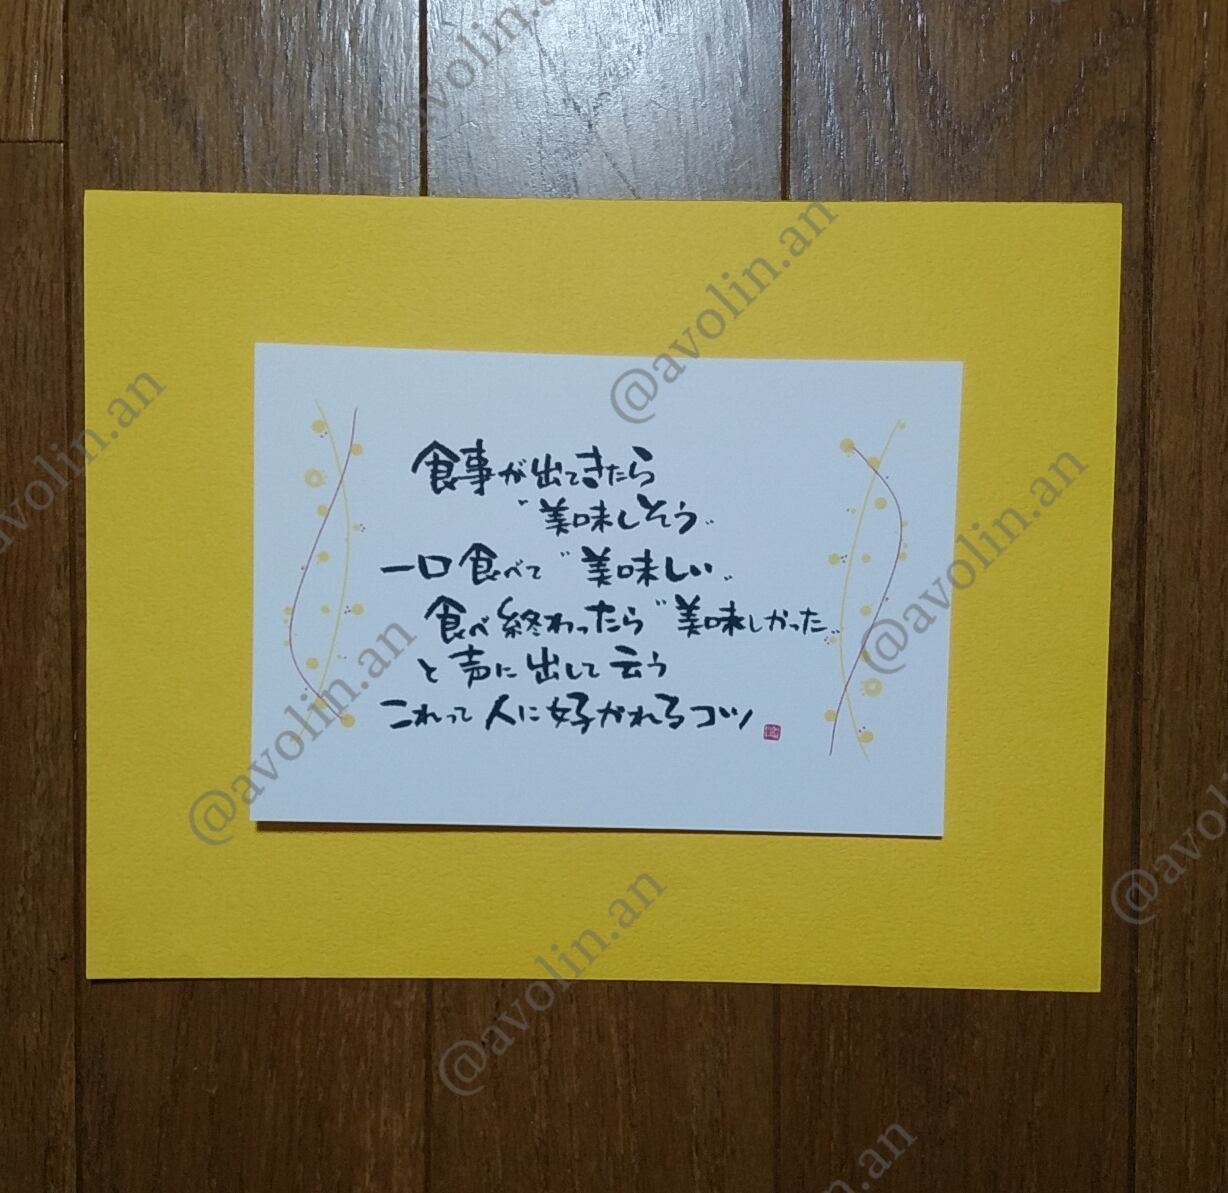 食事が出てきたら
"美味しそう"
一口食べて"美味しい"
食べ終わったら"美味しかった"
と声に出して云う
これって人に好かれるコツ
@avolin.an
@avolin.an
@avolin.an
@avolin.an